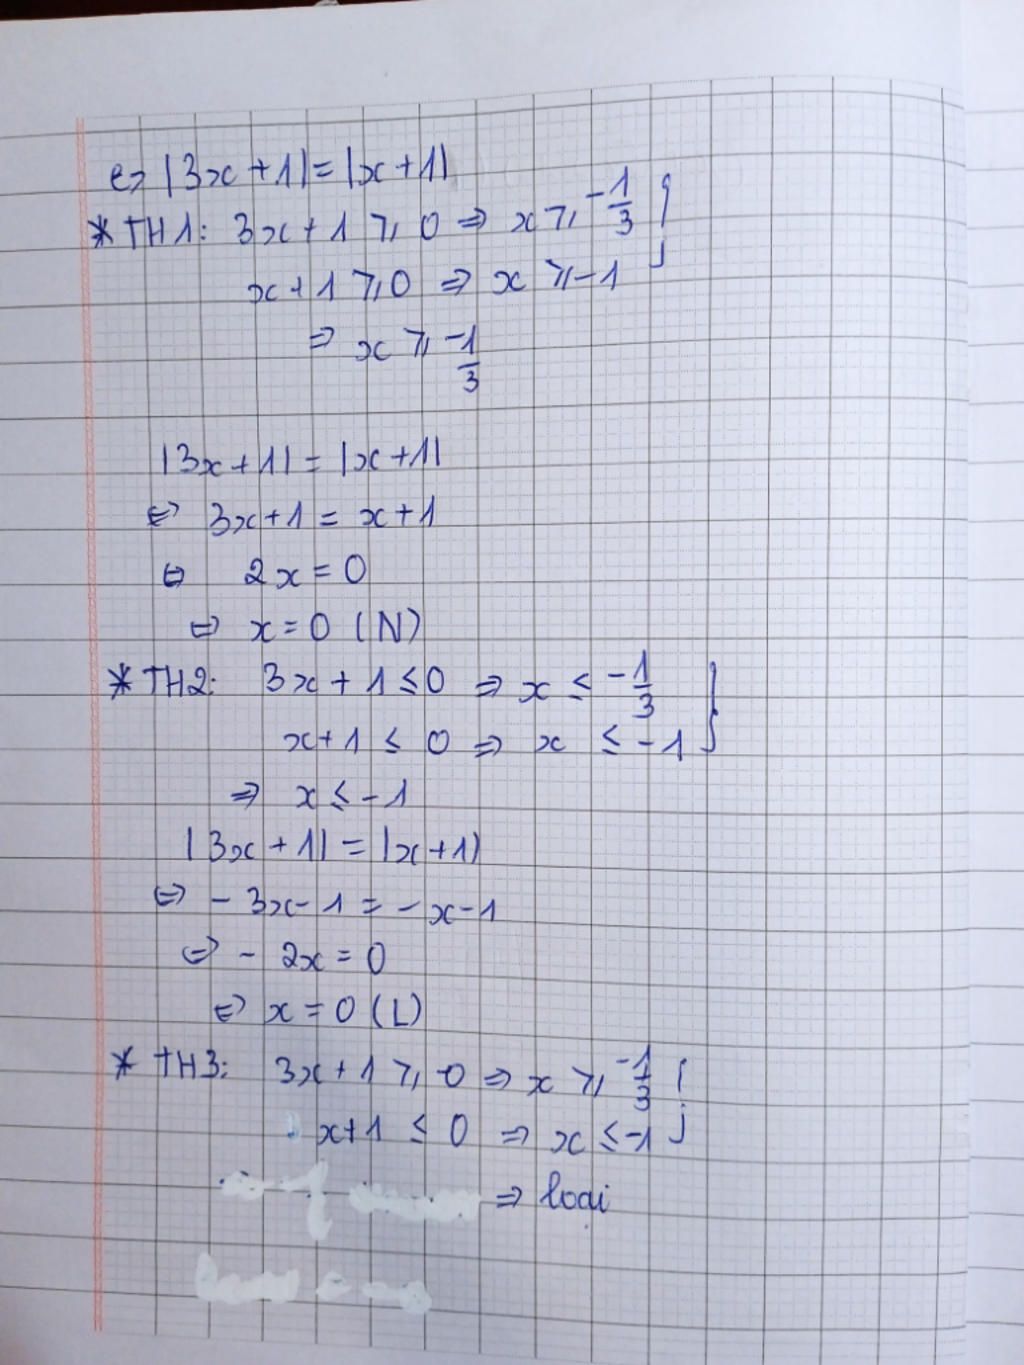 e> |3x+1| = |x+1|
* TH1: 3x+1 ⩾ 0 ⇒ x ⩾ -1/3 }
x+1 ⩾ 0 ⇒ x ⩾ -1
⇒ x ⩾ -1/3
|3x+1| = |x+1|
⇔ 3x+1 = x+1
⇔ 2x = 0
⇔ x = 0 (N)
* TH2: 3x+1 ≤ 0 ⇒ x ≤ -1/3 }
x+1 ≤ 0 ⇒ x ≤ -1
⇒ x ≤ -1
|3x+1| = |x+1|
⇔ -3x-1 = -x-1
⇔ -2x = 0
⇔ x = 0 (L)
* TH3: 3x+1 ⩾ 0 ⇒ x ⩾ -1/3 }
x+1 ≤ 0 ⇒ x ≤ -1
⇒ loại